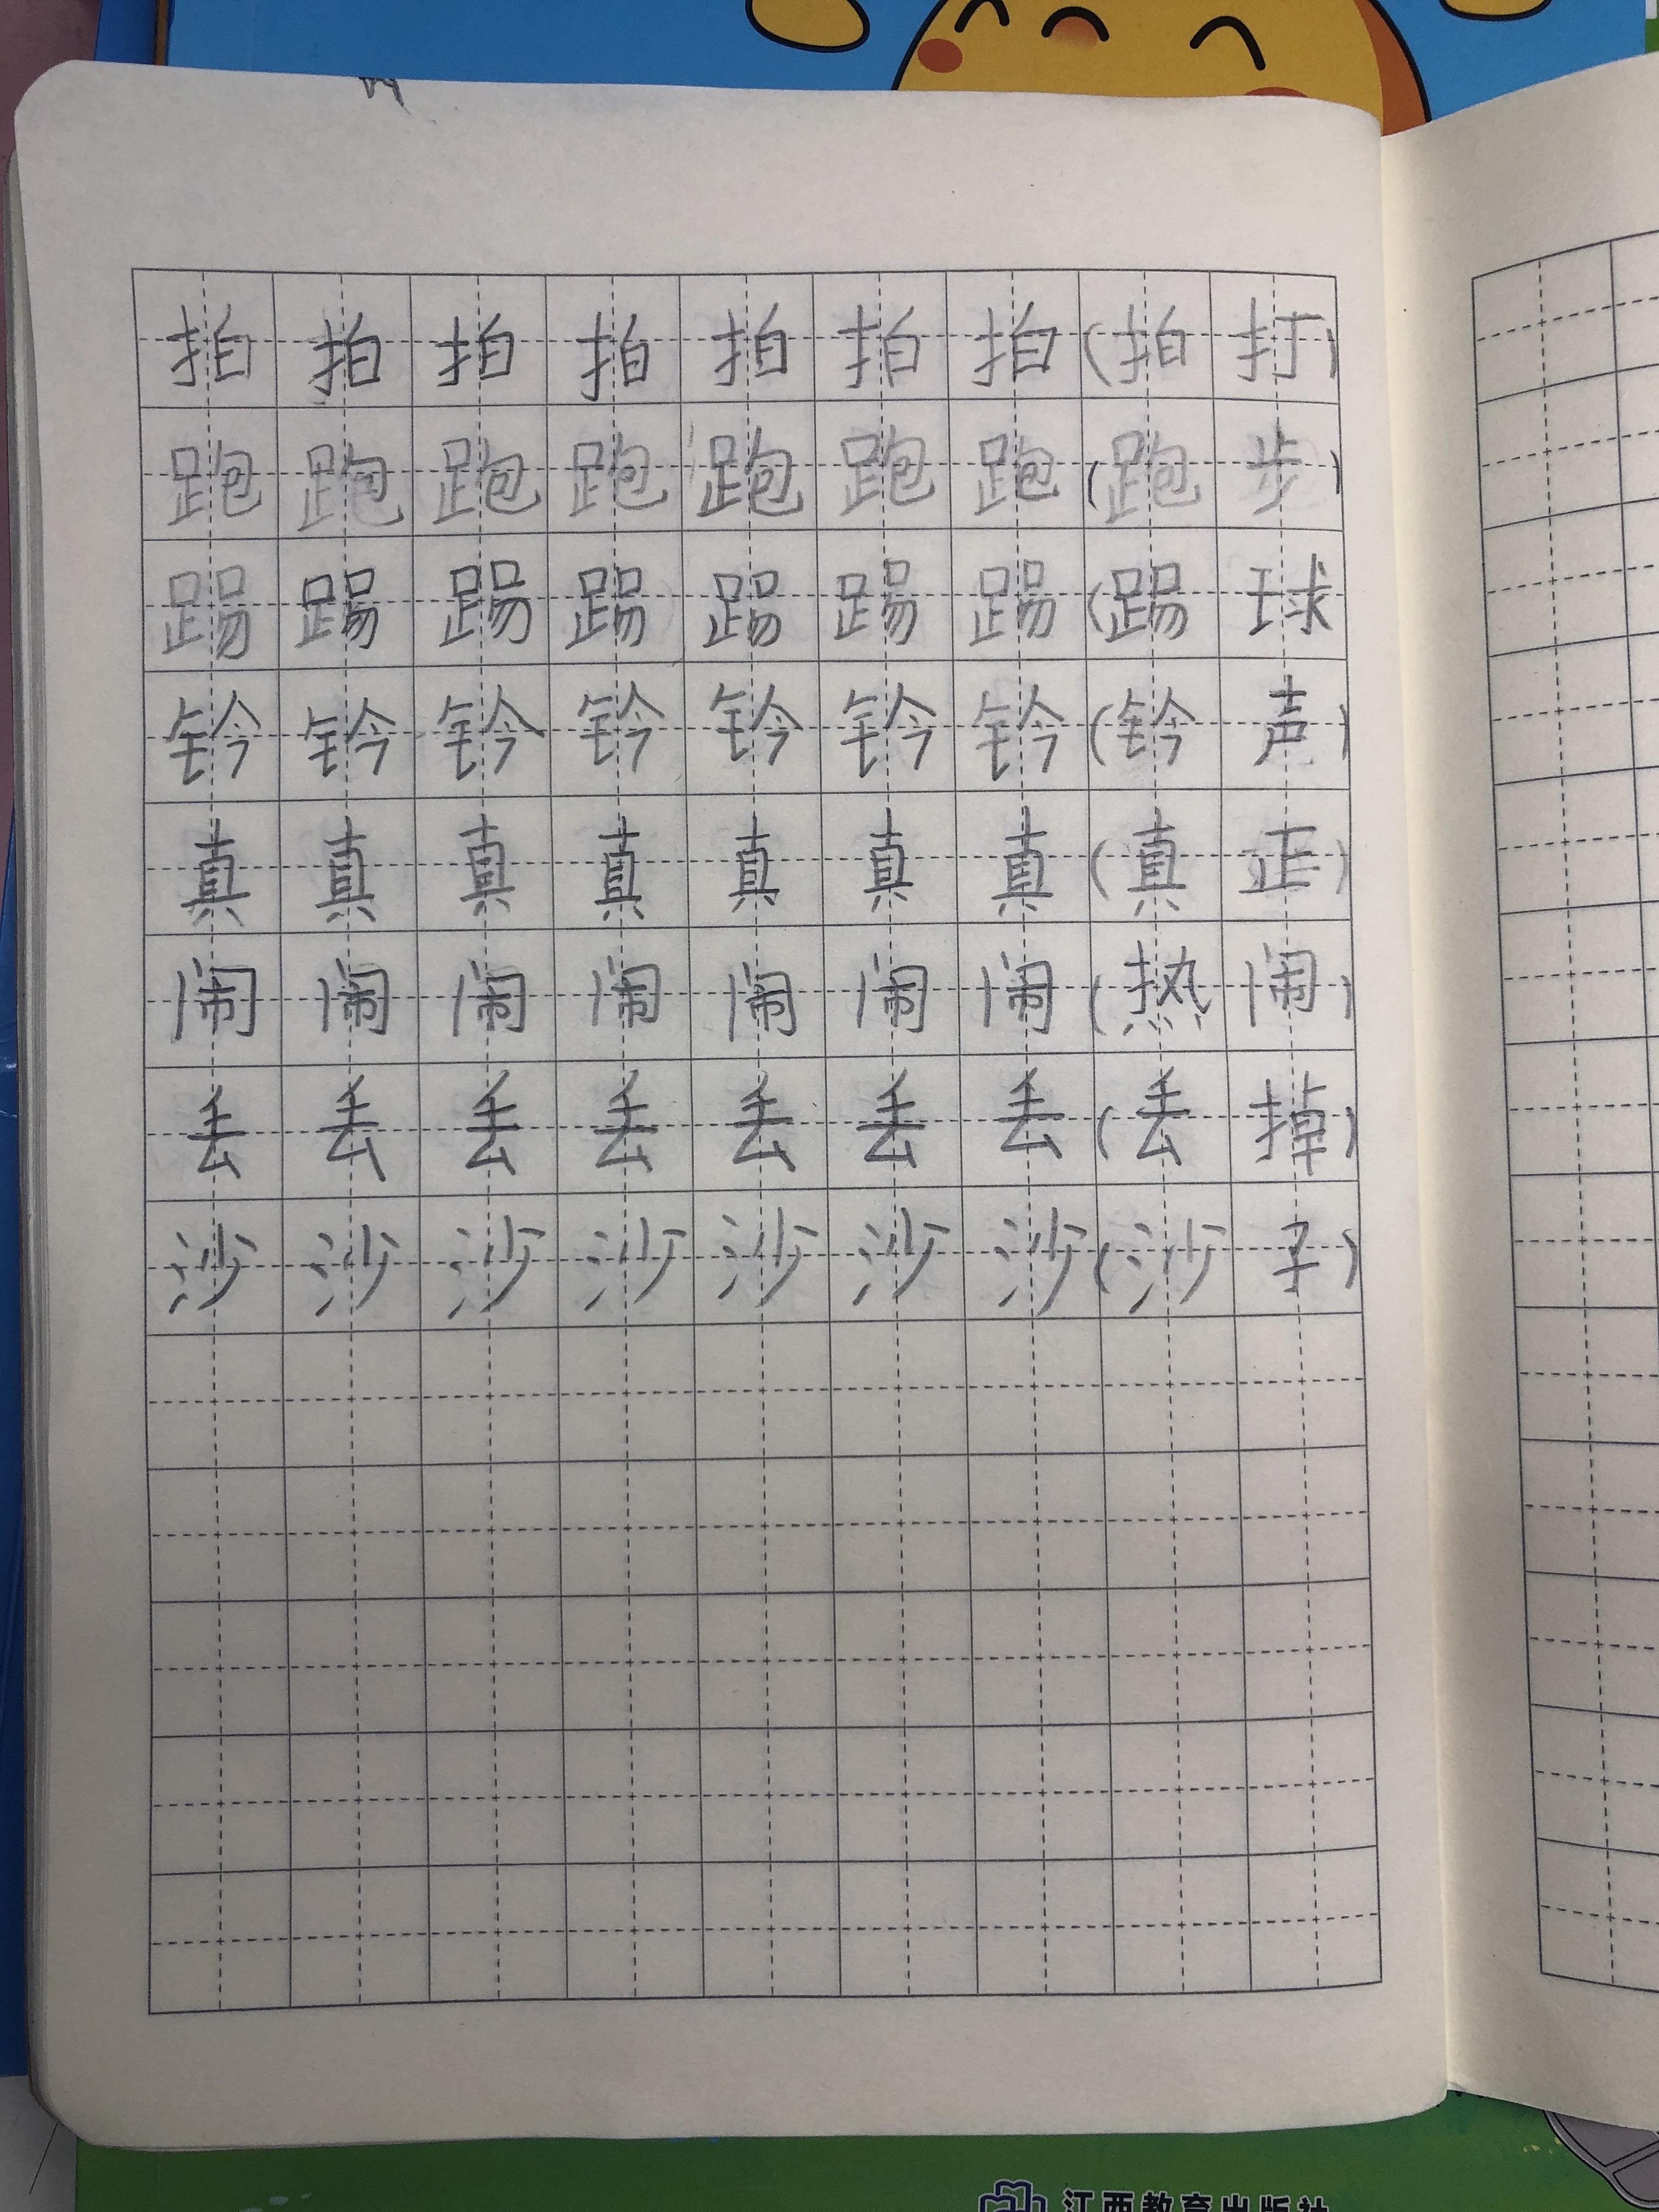 拍拍拍拍拍拍拍(拍打)
跑跑跑跑跑跑跑(跑步)
踢踢踢踢踢踢踢(踢球
钤钤钤钤钤钤钤(钤声)
真真真真真真真(真正)
闹闹闹闹闹闹闹(热闹)
丢丢丢丢丢丢丢(丢掉)
沙沙沙沙沙沙沙(沙子)
江西教育出版社